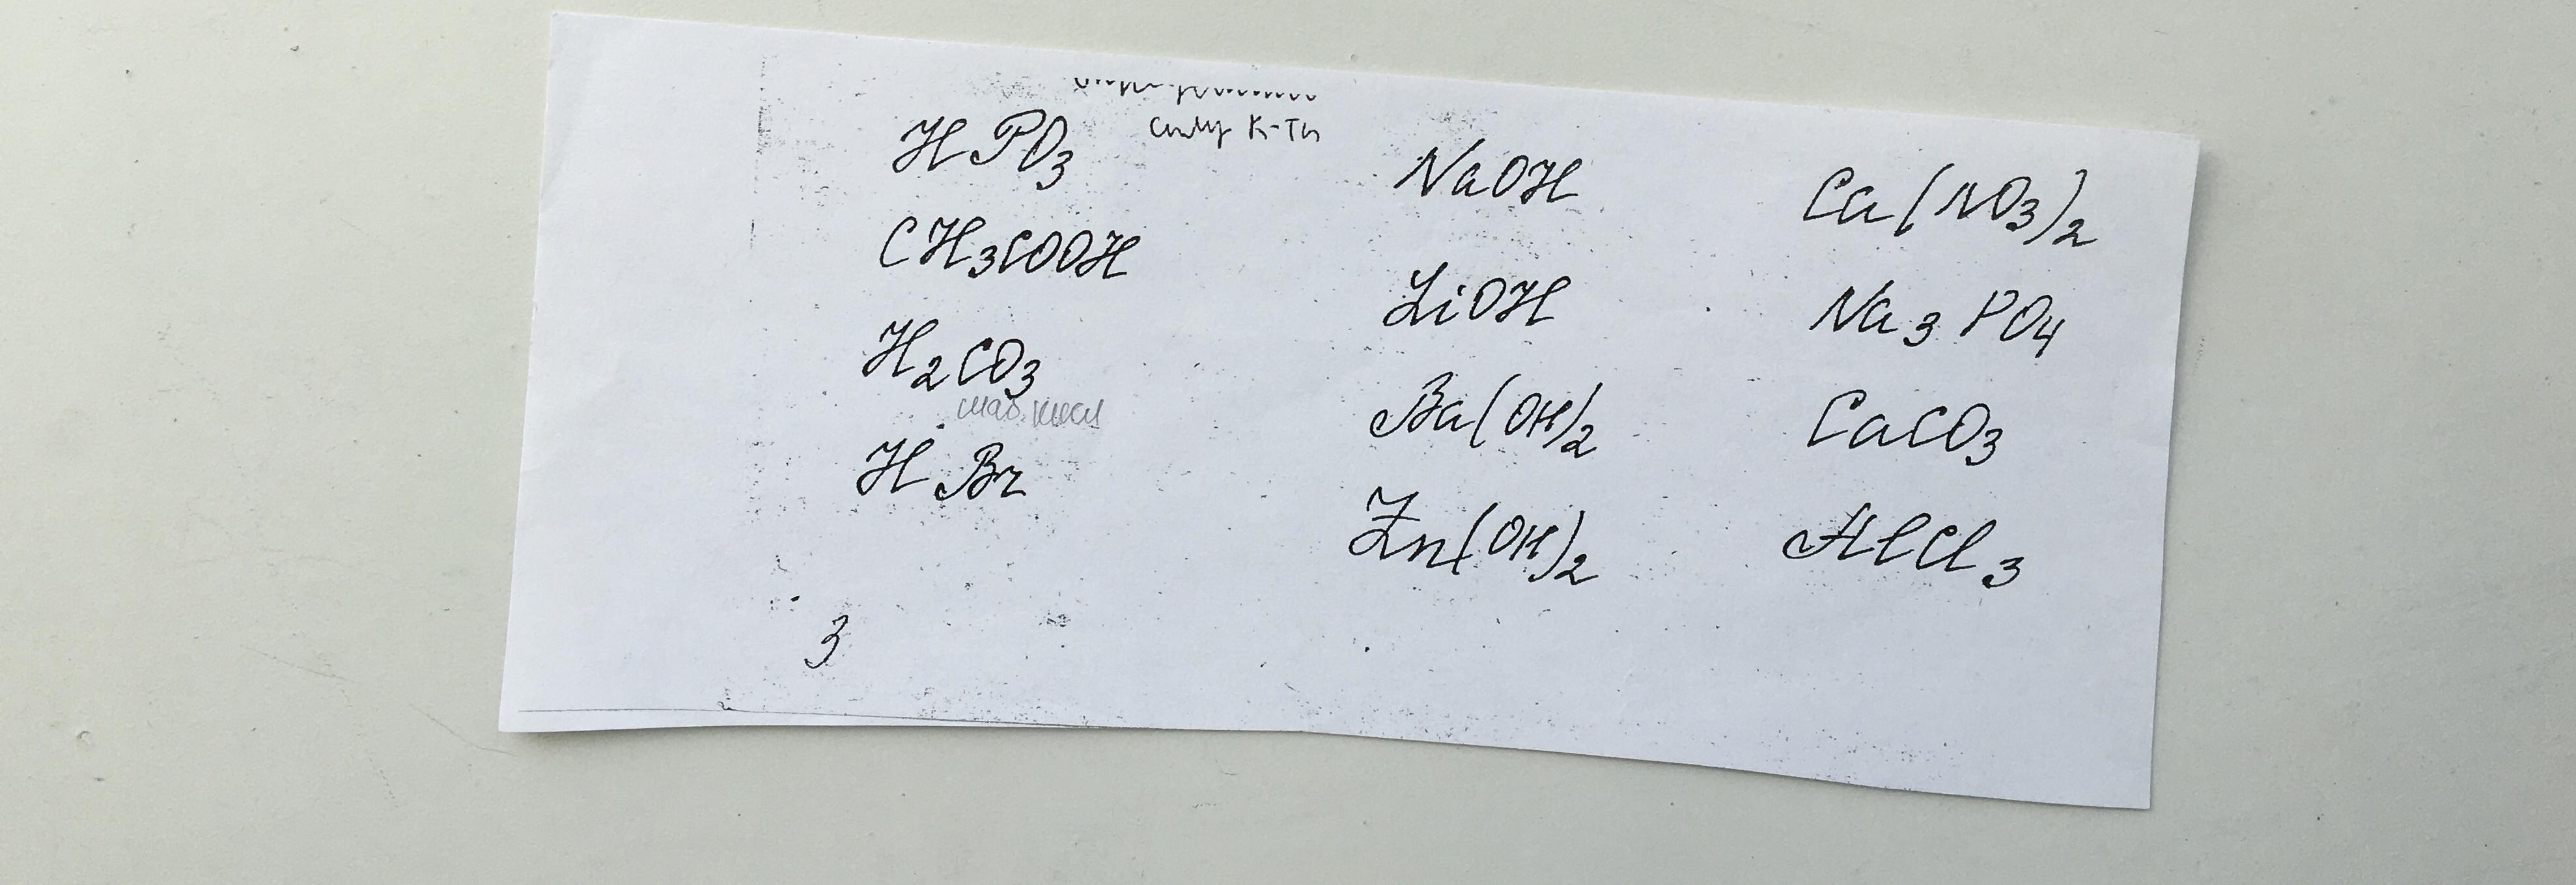 силу к-ты
HPO3
CH3COOH
H2CO3
HBr
3
NaOH
LiOH
Ba(OH)2
Zn(OH)2
Ca(NO3)2
Na3PO4
CaCO3
AlCl3